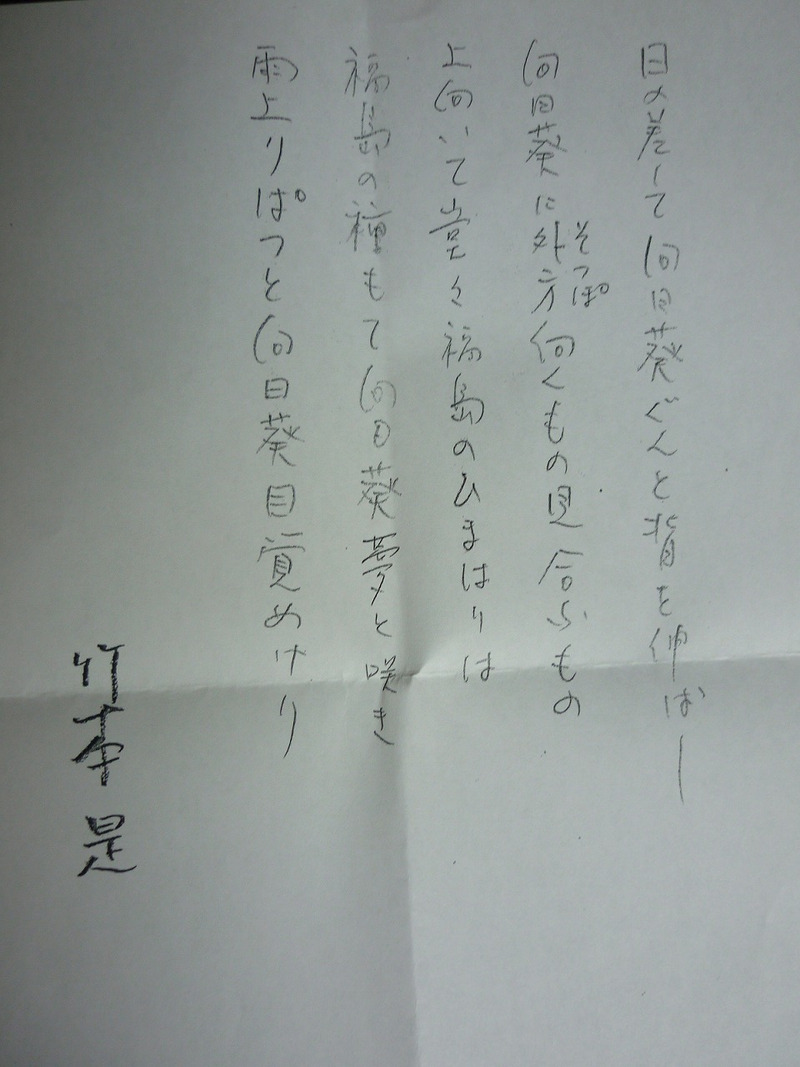 日の差して向日葵ぐんと背を伸ばし
向日葵に外方向くもの見合ふもの
そっぽ
上向いて堂々福島のひまはりは
福島の種もて向日葵夢と咲き
雨上りぱつと向日葵目覚めけり
竹本 是